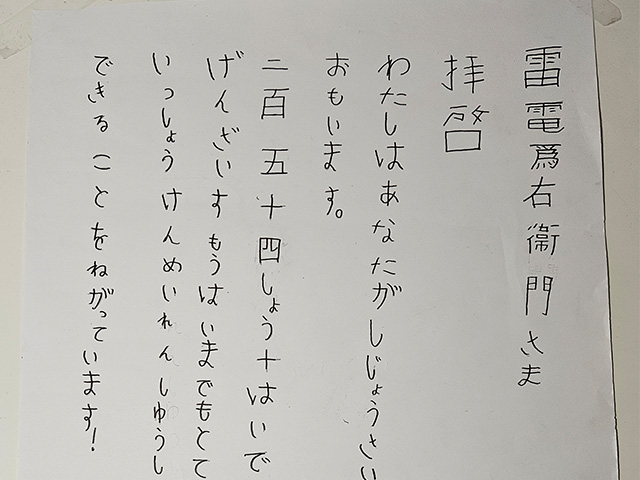 雷電爲右衛門さま
拝啓
わたしはあなたがしじょうさい
おもいます。
二百五十四しょう十はいで
げんざいすもうはいまでもとて
いっしょうけんめいれんしゅうし
できることをねがっています!